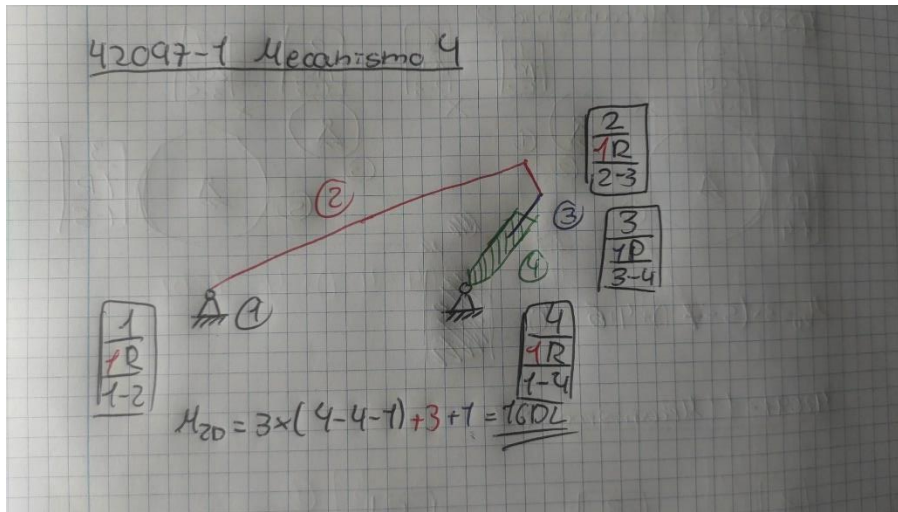 42097-1 Mecanismo 4
2
1R
2-3
②
③
3
1P
3-4
④
①
1
1R
1-2
4
1R
1-4
M2D = 3×(4-4-1)+3+1 = 1GDL